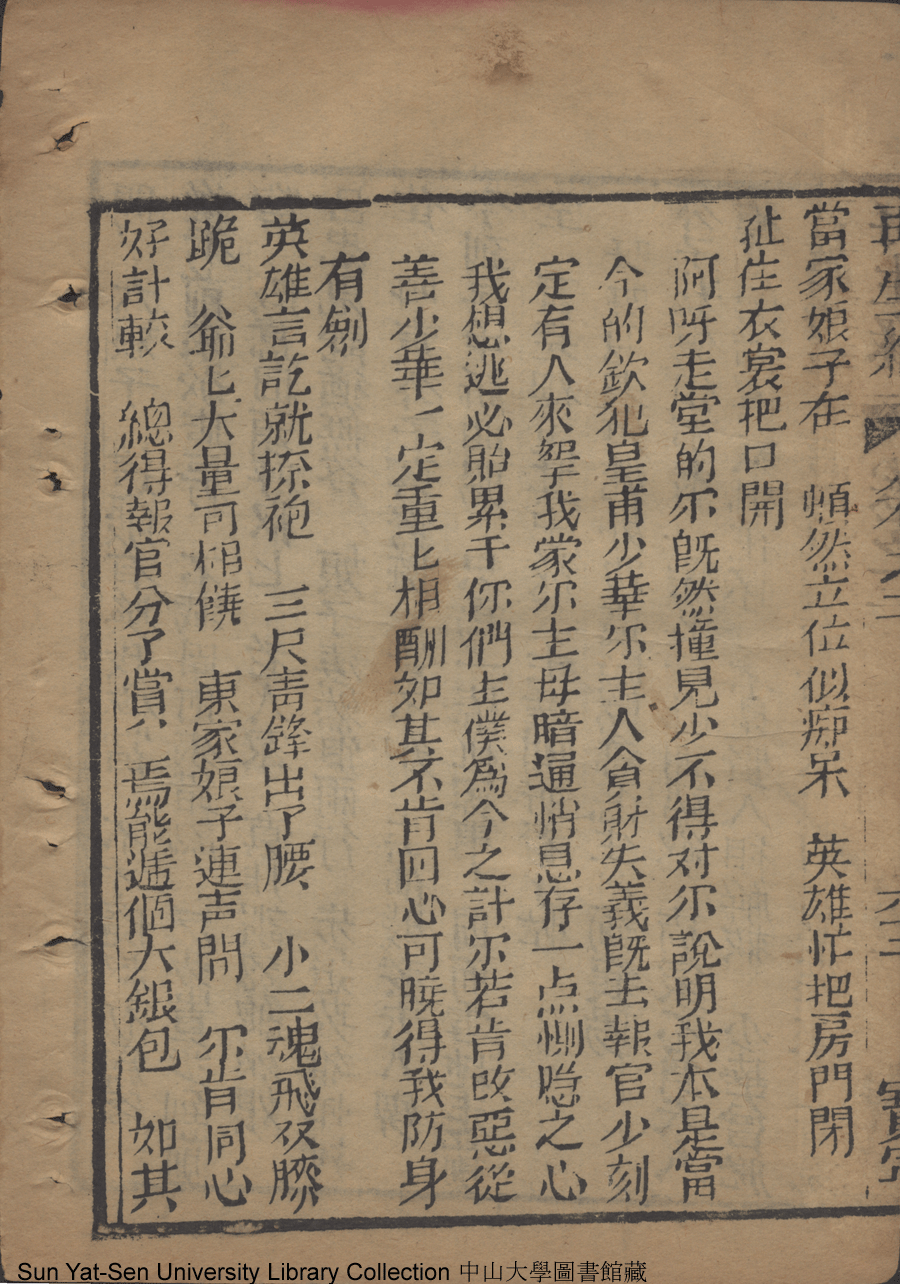 當家娘子在　頓然立位似痴呆　英雄忙把房門閉
扯住衣裳把口開
阿呀走堂的尔既然撞見少不得对尔說明我本是當
今的欽犯皇甫少華尔主人貪財失義既去報官少刻
定有人來拏我蒙尔主母暗通悄息存一点惻隠之心
我想逃必貽累于你們主僕爲今之計尔若肯改惡從
善少華一定重匕相酬如其不肯回心可曉得我防身
有劍
英雄言訖就捺袍　三尺青鋒出了腰　小二魂飛双膝
跪　爺匕大量可相饒　東家娘子連声問　尔肯同心
好計較　總得報官分了賞　焉能逓個大銀包　如其
Sun Yat-Sen University Library Collection 中山大學圖書館藏